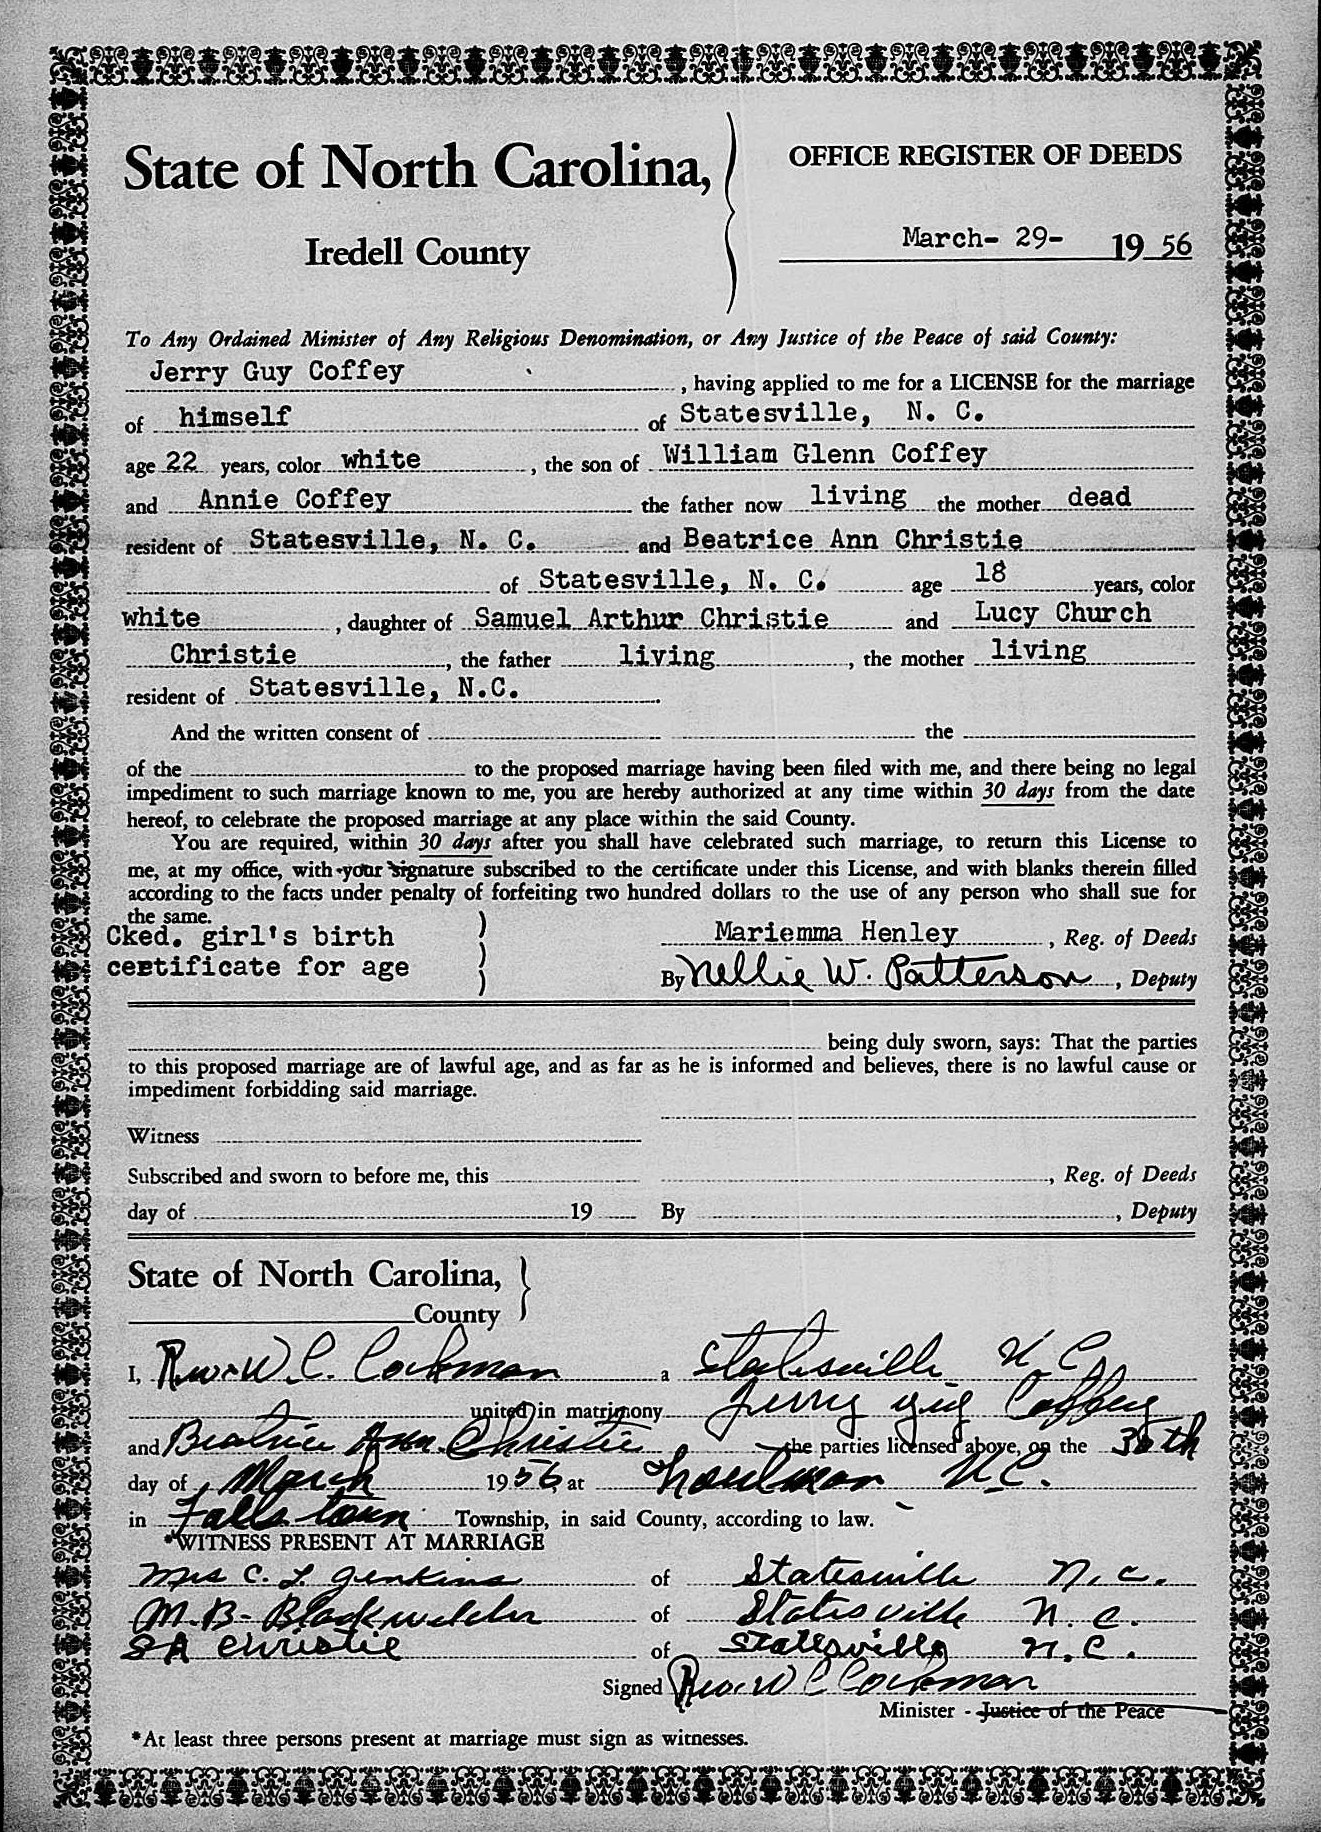 State of North Carolina,
Iredell County
OFFICE REGISTER OF DEEDS
March- 29- 19 56
To Any Ordained Minister of Any Religious Denomination, or Any Justice of the Peace of said County:
Jerry Guy Coffey , having applied to me for a LICENSE for the marriage
of himself of Statesville, N. C.
age 22 years, color white , the son of William Glenn Coffey
and Annie Coffey the father now living the mother dead
resident of Statesville, N. C. and Beatrice Ann Christie
of Statesville, N. C. age 18 years, color
white , daughter of Samuel Arthur Christie and Lucy Church
Christie , the father living , the mother living
resident of Statesville, N.C.
And the written consent of the
of the to the proposed marriage having been filed with me, and there being no legal
impediment to such marriage known to me, you are hereby authorized at any time within 30 days from the date
hereof, to celebrate the proposed marriage at any place within the said County.
You are required, within 30 days after you shall have celebrated such marriage, to return this License to
me, at my office, with your signature subscribed to the certificate under this License, and with blanks therein filled
according to the facts under penalty of forfeiting two hundred dollars to the use of any person who shall sue for
the same.
Cked. girl's birth )
certificate for age )
Mariemma Henley , Reg. of Deeds
By Nellie W. Patterson , Deputy
being duly sworn, says: That the parties
to this proposed marriage are of lawful age, and as far as he is informed and believes, there is no lawful cause or
impediment forbidding said marriage.
Witness
Subscribed and sworn to before me, this , Reg. of Deeds
day of 19 By , Deputy
State of North Carolina,
County
I, Rev. W. C. Cockman a Statesville N C
united in matrimony Jerry Guy Coffey
and Beatrice Ann Christie the parties licensed above, on the 30th
day of March 1956 at N.C.
in Falls town Township, in said County, according to law.
*WITNESS PRESENT AT MARRIAGE
Mrs C. L. Jenkins of Statesville N. C.
M. B. Blackwelder of Statesville N. C.
S A Christie of Statesville N. C.
Signed Rev. W C Cockman
Minister - Justice of the Peace
*At least three persons present at marriage must sign as witnesses.